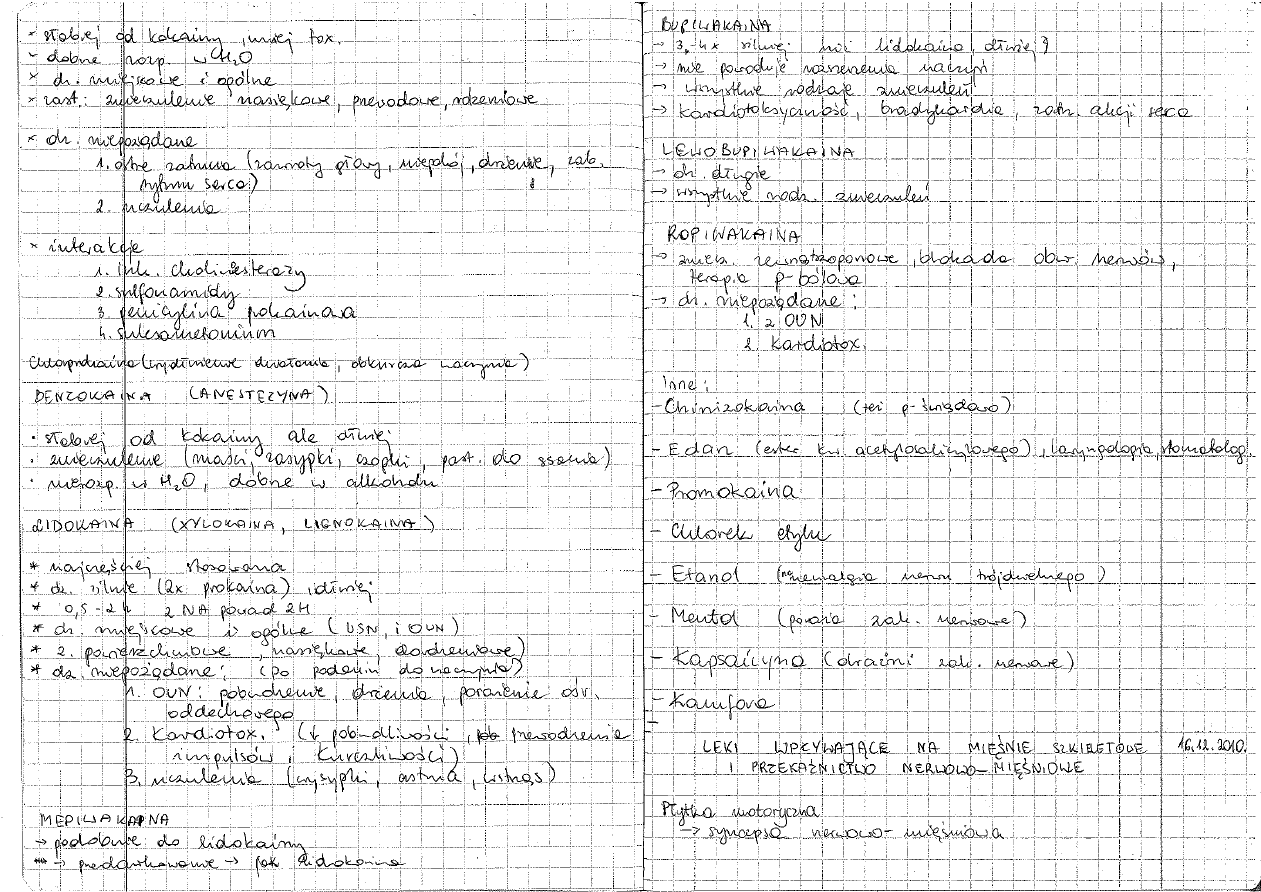 × słabiej od kokainy, mniej tox.
× dobrze rozp. w H2O
× dz. miejscowe i ogólne
× zast.: znieczulenie nasiękowe, przewodowe, rdzeniowe
× dz. niepożądane
1. ostre zatrucia (zawroty głowy, niepokój, drżenie, zab.
rytmu serca)
2. uczulenia
× interakcje
1. inh. cholinesterazy
2. sulfonamidy
3. penicylina prokainowa
4. suksametonium
Chloroprokaina (wydłużenie działania, obkurcza naczynia)
BENZOKAINA (ANESTEZYNA)
· słabiej od kokainy ale dłużej
· znieczulenie (maści, zasypki, czopki, past. do ssania)
· nierozp. w H2O, dobrze w alkoholu
LIDOKAINA (XYLOKAINA, LIGNOKAINA)
* najczęściej stosowana
* dz. silnie (2x prokaina), dłużej
* 0,5-2h z NA ponad 2H
* dz. miejscowe i ogólne (USN, i OUN)
* z. powierzchniowe, nasiękowe, dordzeniowe)
* dz. niepożądane: (po podaniu do naczynia)
1. OUN: pobudzenie, drżenia, porażenie ośr.
oddechowego
2. Kardiotox. (↓ pobudliwości, przewodzenia
impulsów i kurczliwości)
3. uczulenia (wysypki, astma, wstrząs)
MEPIWAKAINA
→ podobnie do lidokainy
→ przedawkowanie → jak lidokaina
BUPIWAKAINA
→ 3, 4x silniej niż lidokaina, dłużej
→ nie powoduje rozszerzenia naczyń
→ wszystkie rodzaje znieczuleń
→ kardiotoksyczność, bradykardia, zatrz. akcji serca
LEWOBUPIWAKAINA
→ dz. długie
→ wszystkie rodz. znieczuleń
ROPIWAKAINA
→ zniecz. zewnątrzoponowe, blokada obw. nerwów,
terapia p-bólowa
→ dz. niepożądane:
1. z OUN
2. Kardiotox.
Inne:
- Chinizokaina (też p-świądowo)
- Edan (ester kw. acetylosalicylowego), laryngologia, stomatolog.
- Promokaina
- Chlorek etylu
- Etanol (neuralgia nerwu trójdzielnego)
- Mentol (poraża zak. nerwowe)
- Kapsaicyna (drażni zak. nerwowe)
- Kamfora
LEKI WPŁYWAJĄCE NA MIĘŚNIE SZKIELETOWE 16.12.2010.
I PRZEKAŹNICTWO NERWOWO-MIĘŚNIOWE
Płytka motoryczna
→ synapsa nerwowo-mięśniowa